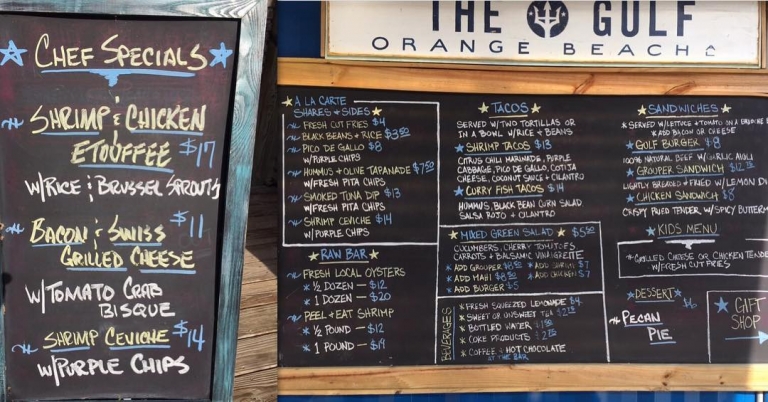 CHEF SPECIALS
SHRIMP & CHICKEN
ETOUFFEE $17
W/RICE & BRUSSEL SPROUTS
BACON & SWISS $11
GRILLED CHEESE
W/TOMATO CRAB
BISQUE
SHRIMP CEVICHE $14
W/PURPLE CHIPS
THE GULF
ORANGE BEACH
À LA CARTE
SHARES + SIDES
FRESH CUT FRIES $4
BLACK BEANS + RICE $3.50
PICO DE GALLO $8
W/PURPLE CHIPS
HUMMUS + OLIVE TAPANADE $7.50
W/FRESH PITA CHIPS
SMOKED TUNA DIP $13
W/FRESH PITA CHIPS
SHRIMP CEVICHE $14
W/PURPLE CHIPS
RAW BAR
FRESH LOCAL OYSTERS
½ DOZEN — $12
1 DOZEN — $20
PEEL + EAT SHRIMP
½ POUND — $12
1 POUND — $19
TACOS
SERVED W/TWO TORTILLAS OR
IN A BOWL W/RICE + BEANS
SHRIMP TACOS $13
CITRUS CHILI MARINADE, PURPLE
CABBAGE, PICO DE GALLO, COTIJA
CHEESE, COCONUT SAUCE + CILANTRO
CURRY FISH TACOS $14
HUMMUS, BLACK BEAN CORN SALAD
SALSA ROJO + CILANTRO
MIXED GREEN SALAD $5.50
CUCUMBERS, CHERRY TOMATOES
CARROTS + BALSAMIC VINAIGRETTE
ADD GROUPER ADD SHRIMP $7
ADD MAHI ADD CHICKEN $7
ADD BURGER $5
BEVERAGES
FRESH SQUEEZED LEMONADE $4
SWEET OR UNSWEET TEA
BOTTLED WATER
COKE PRODUCTS
COFFEE + HOT CHOCOLATE
AT THE BAR
SANDWICHES
SERVED W/LETTUCE + TOMATO ON A BRIOCHE
ADD BACON OR CHEESE
GOLF BURGER $8
100% NATURAL BEEF W/GARLIC AIOLI
GROUPER SANDWICH
LIGHTLY BREADED + FRIED W/LEMON
CHICKEN SANDWICH $8
CRISPY FRIED TENDER W/SPICY
KIDS MENU
GRILLED CHEESE OR CHICKEN
W/FRESH CUT FRIES
DESSERT
PECAN
PIE
GIFT
SHOP